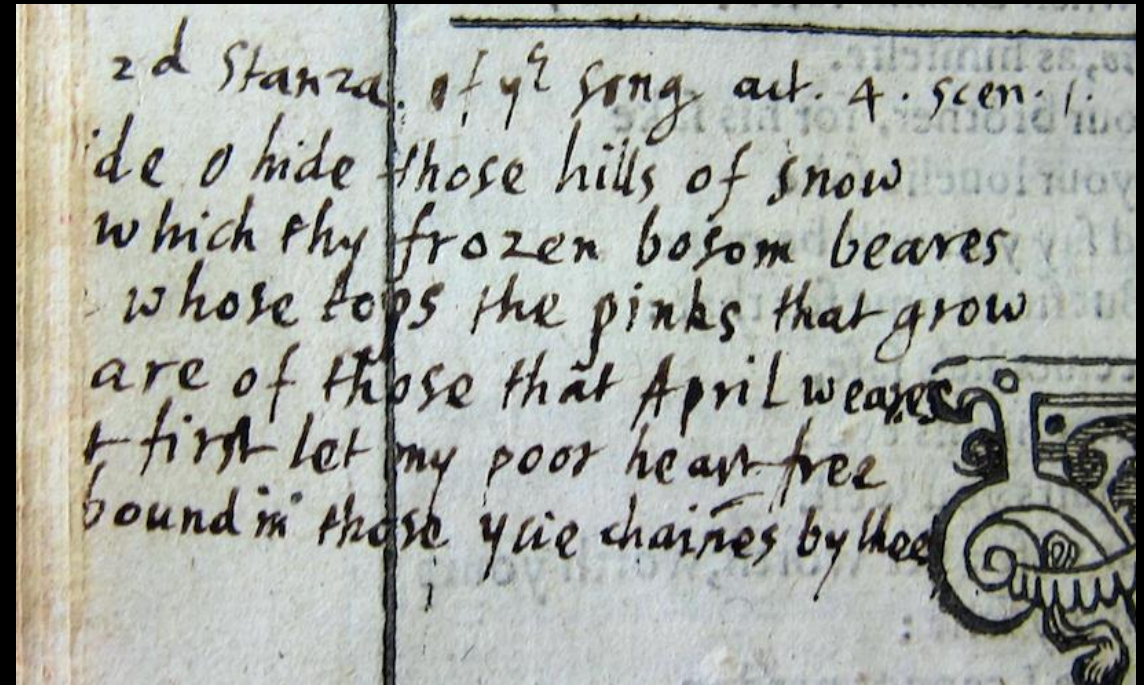 2d Stanza. of yᵉ song act. 4. scen. 1.
ide o hide those hills of snow
which thy frozen bosom beares
whose tops the pinks that grow
are of those that April weares
t first let my poor heart free
bound in those ycie chaines by thee